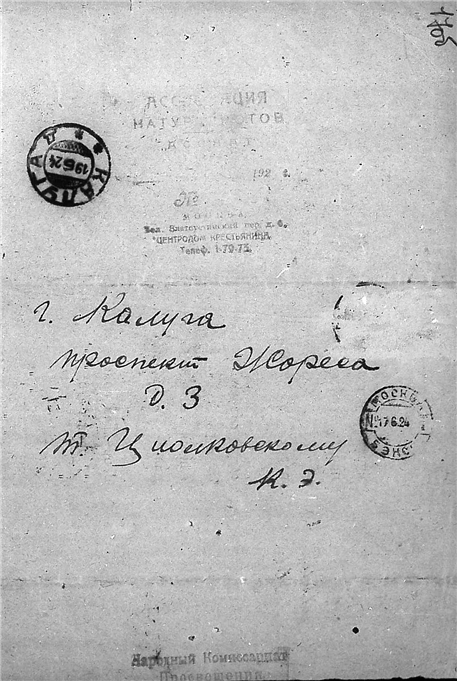 1705
АССОЦИАЦИЯ
НАТУРАЛИСТОВ
192 г.
№
МОСКВА,
Бол. Златоустинский пер. д. 6.
"ЦЕНТРОДОМ КРЕСТЬЯНИНА
Телеф. 1-79-73.
КАЛУГА
19 6 24
г. Калуга
проспект Жореса
Д. 3
МОСКВА
17 6 24
т. Циолковскому
К. Э.
Народный Комиссариат
Просвещения